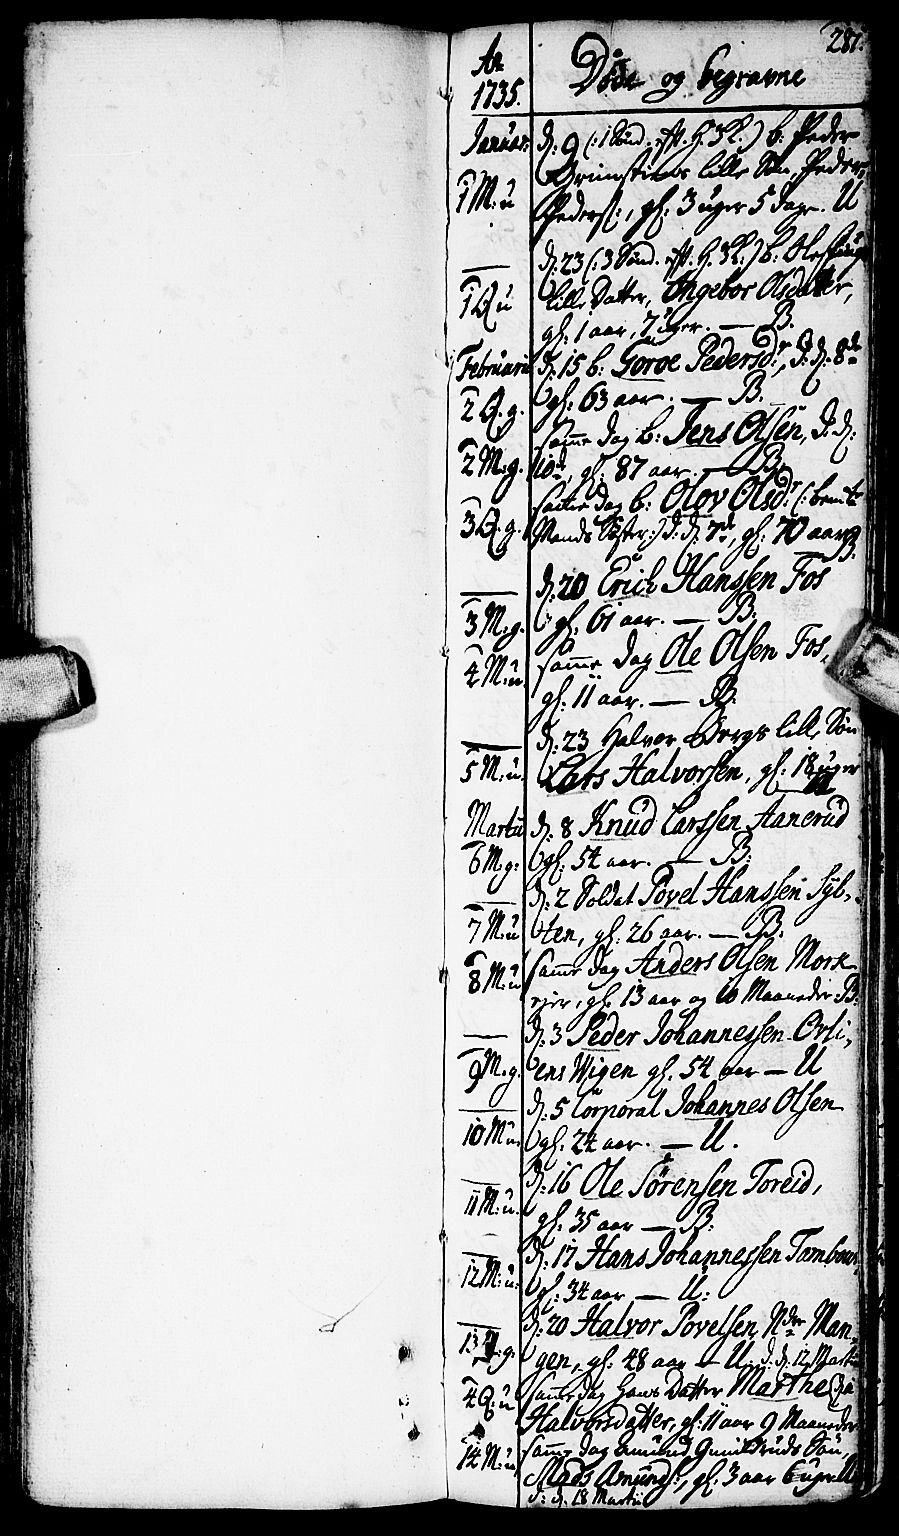 287.
Ao 1735. Døde og begravne
Januar: d: 9 (: 1 Sønd. eft. H. 3 K:) b: Peder
Grimstiens lille Søn, Peder
1 M: u Peders:, gl: 3 uger 5 dage. U
d: 23 (: 3 Sønd. eft. H. 3 K:) b: Ole
1 Q u lille Datter, Ingebor Olsdatter,
gl: 1 aar, 7 uger. — B.
Februarii d: 15 b: Goroe Pedersdr, d: d: 8de
2 Q. g. gl: 63 aar. — B.
samme dag b: Jens Olsen, d. d:
2 M. g. 10de, gl: 87 aar. — B.
samme dag b: Olov Olsdr (: bemte
3 Q. g. Mands Søster:) d: d: 7de, gl: 70 aar B.
d: 20 Erich Hanssen Fos
3 M. g. gl: 61 aar. — B.
samme dag Ole Olsen Fos,
4 M: u. gl: 11 aar. — B.
d: 23 Halvor Bergs lille Søn
5 M: u. Lars Halvorsen, gl: 18 uger
U
Martii d: 8 Knud Larssen Aanerud
6 M. g: gl: 54 aar. — B.
d: 2 Soldat Povel Hanssen Syl-
7 M: u ten, gl: 26 aar. — B.
samme dag Anders Olsen Mork-
8 M: u rier, gl: 13 aar og 10 Maaneder B.
d: 3 Peder Johannessen Ovli-
9 M. g. ens Wigen gl: 54 aar — U
d: 5 Corporal Johannes Olsen
10 M: u. gl: 24 aar. — U.
d: 16 Ole Sørensen Toreid,
11 M: u. gl: 35 aar — B.
d: 17 Hans Johannessen Tambour
12 M: u: gl: 34 aar — U:
d: 20 Halvor Povelsen, Nder Man-
13 M. g. gen, gl: 48 aar — U. d. d. 12 Martii
samme dag hans Datter Marthe
4 Q: u Halvorsdatter, gl: 11 aar 9 Maaneder
samme dag Amund Gunildruds Søn,
14 M: u Mads Amunds:, gl: 3 aar 6 uger U
d: d. 18 Martii